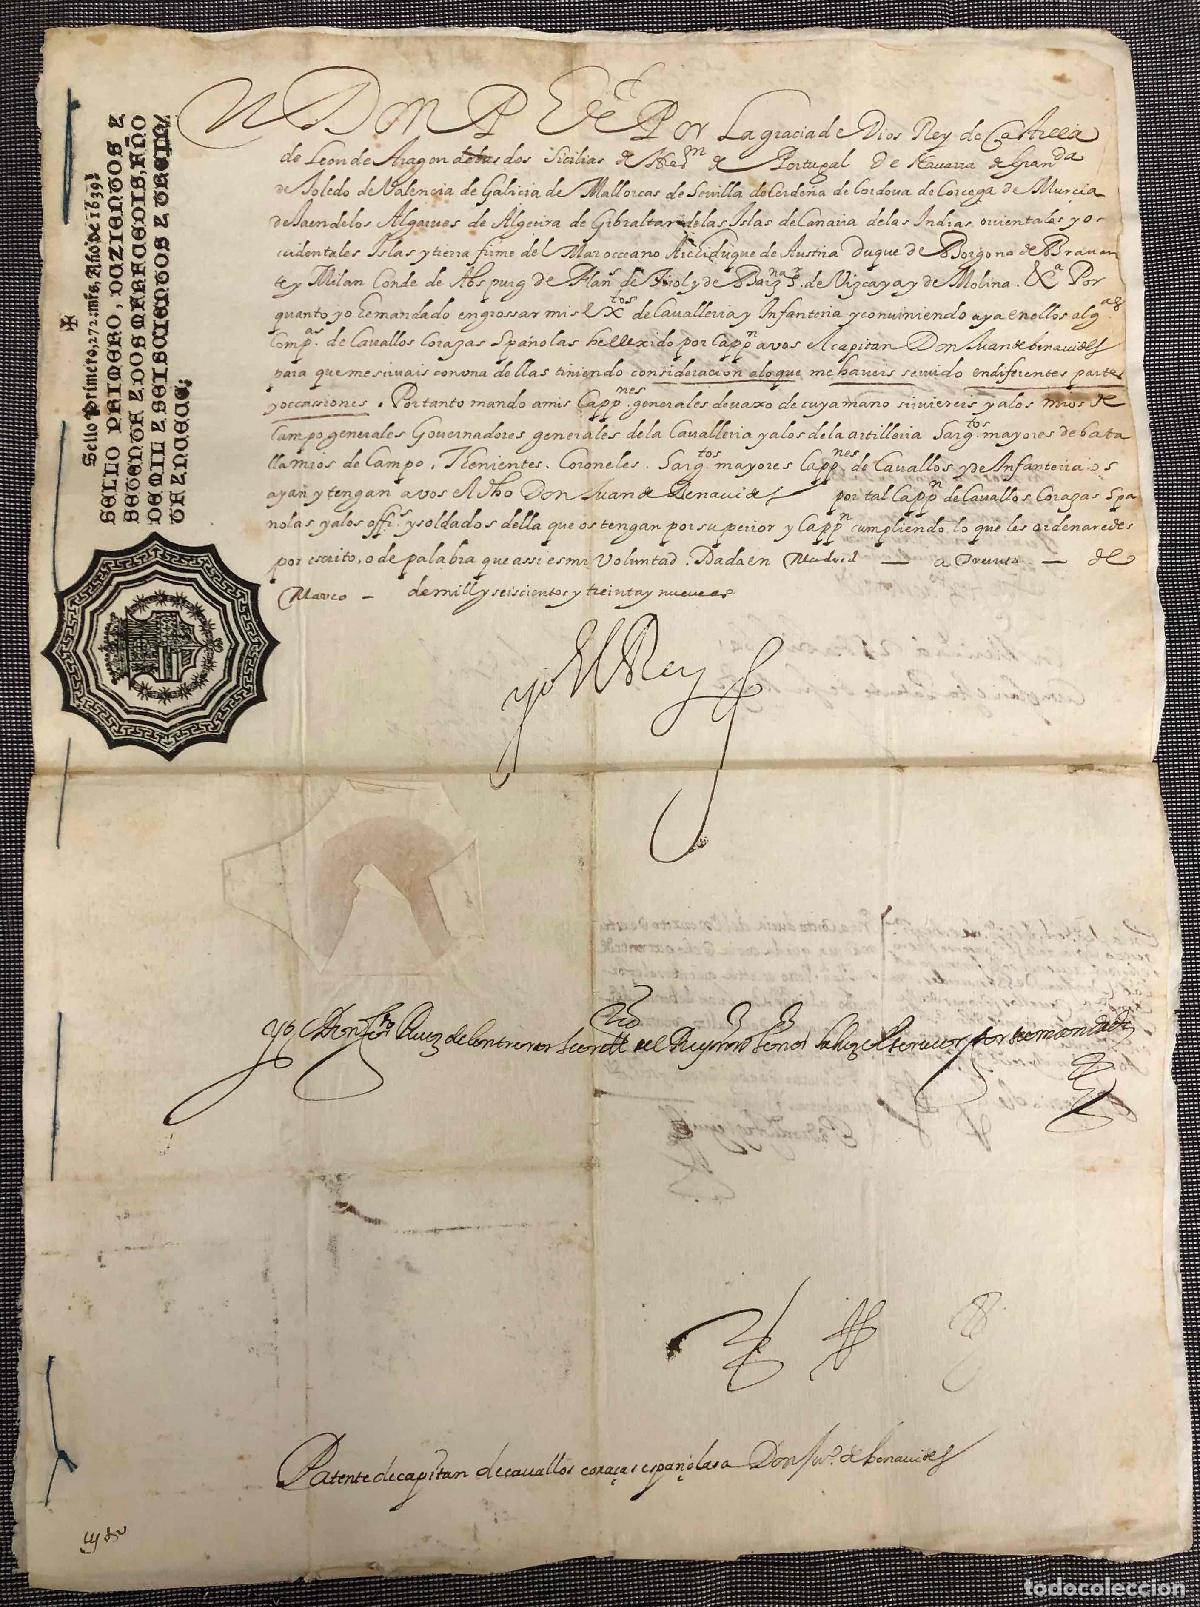 ✠
Sello Primero, 272. mrs, Año de 1639
SELLO PRIMERO, DOZIENTOS Y
SETENTA Y DOS MARAVEDIS, AÑO
DE MIL Y SEISCIENTOS Y TREIN
TA Y NUEVE.
DON PHE^e Por La gracia de Dios Rey de Castilla
de Leon de Aragon de las dos Sicilias de Hier^n de Portugal de Nauarra de Gran^da
de Toledo de Valencia de Galicia de Mallorcas de Seuilla de Cerdeña de Cordoua de Corcega de Murcia
de Jaen de los Algarues de Algecira de Gibraltar de las Islas de Canaria de las Indias orientales y oc
cidentales Islas y tierra firme del Mar occeano Archiduque de Austria Duque de Borgoña de Brauan
te y Milan Conde de Abspurg de Flan^s de Tirol y de Barz^na S^r. de Vizcaya y de Molina. &^a Por
quanto yo he mandado engrossar mis Ex^tos de Caualleria y Infanteria y conuiniendo aya en ellos alg^as
Comp^as. de Cauallos Corazas Españolas he elexido por Capp^n a vos el capitan Don Juan de benauides
para que me siruais con vna dellas tiniendo consideracion a lo que me haueis seruido en diferentes partes
y occassiones. Por tanto mando a mis Capp^nes generales devaxo de cuya mano siruieredes, y a los mros de
Campo generales Gouernadores generales de la Caualleria y a los de la artilleria Sarg^tos mayores de bata
lla mros de Campo, Thenientes, Coroneles, Sarg^tos mayores Capp^nes de Cauallos y de Infanteria os
ayan y tengan a vos el dho Don Juan de Benauides por tal Capp^n de Cauallos Corazas Spa
ñolas y a los offi^s y soldados della que os tengan por su superior y Capp^n cumpliendo lo que les ordenaredes
por escrito, o de palabra que assi es mi Voluntad. Dada en Madrid — a Treinta — de
Março — de mill y seiscientos y treinta y nueue as
yo El Rey
yo Don fer^do Ruiz de Contreras Secret^rio del Rey nro Señor la hize escreuir por su mandado
Patente de capitan de cauallos coraças españolas a Don Ju^o. de benauides
todocoleccion